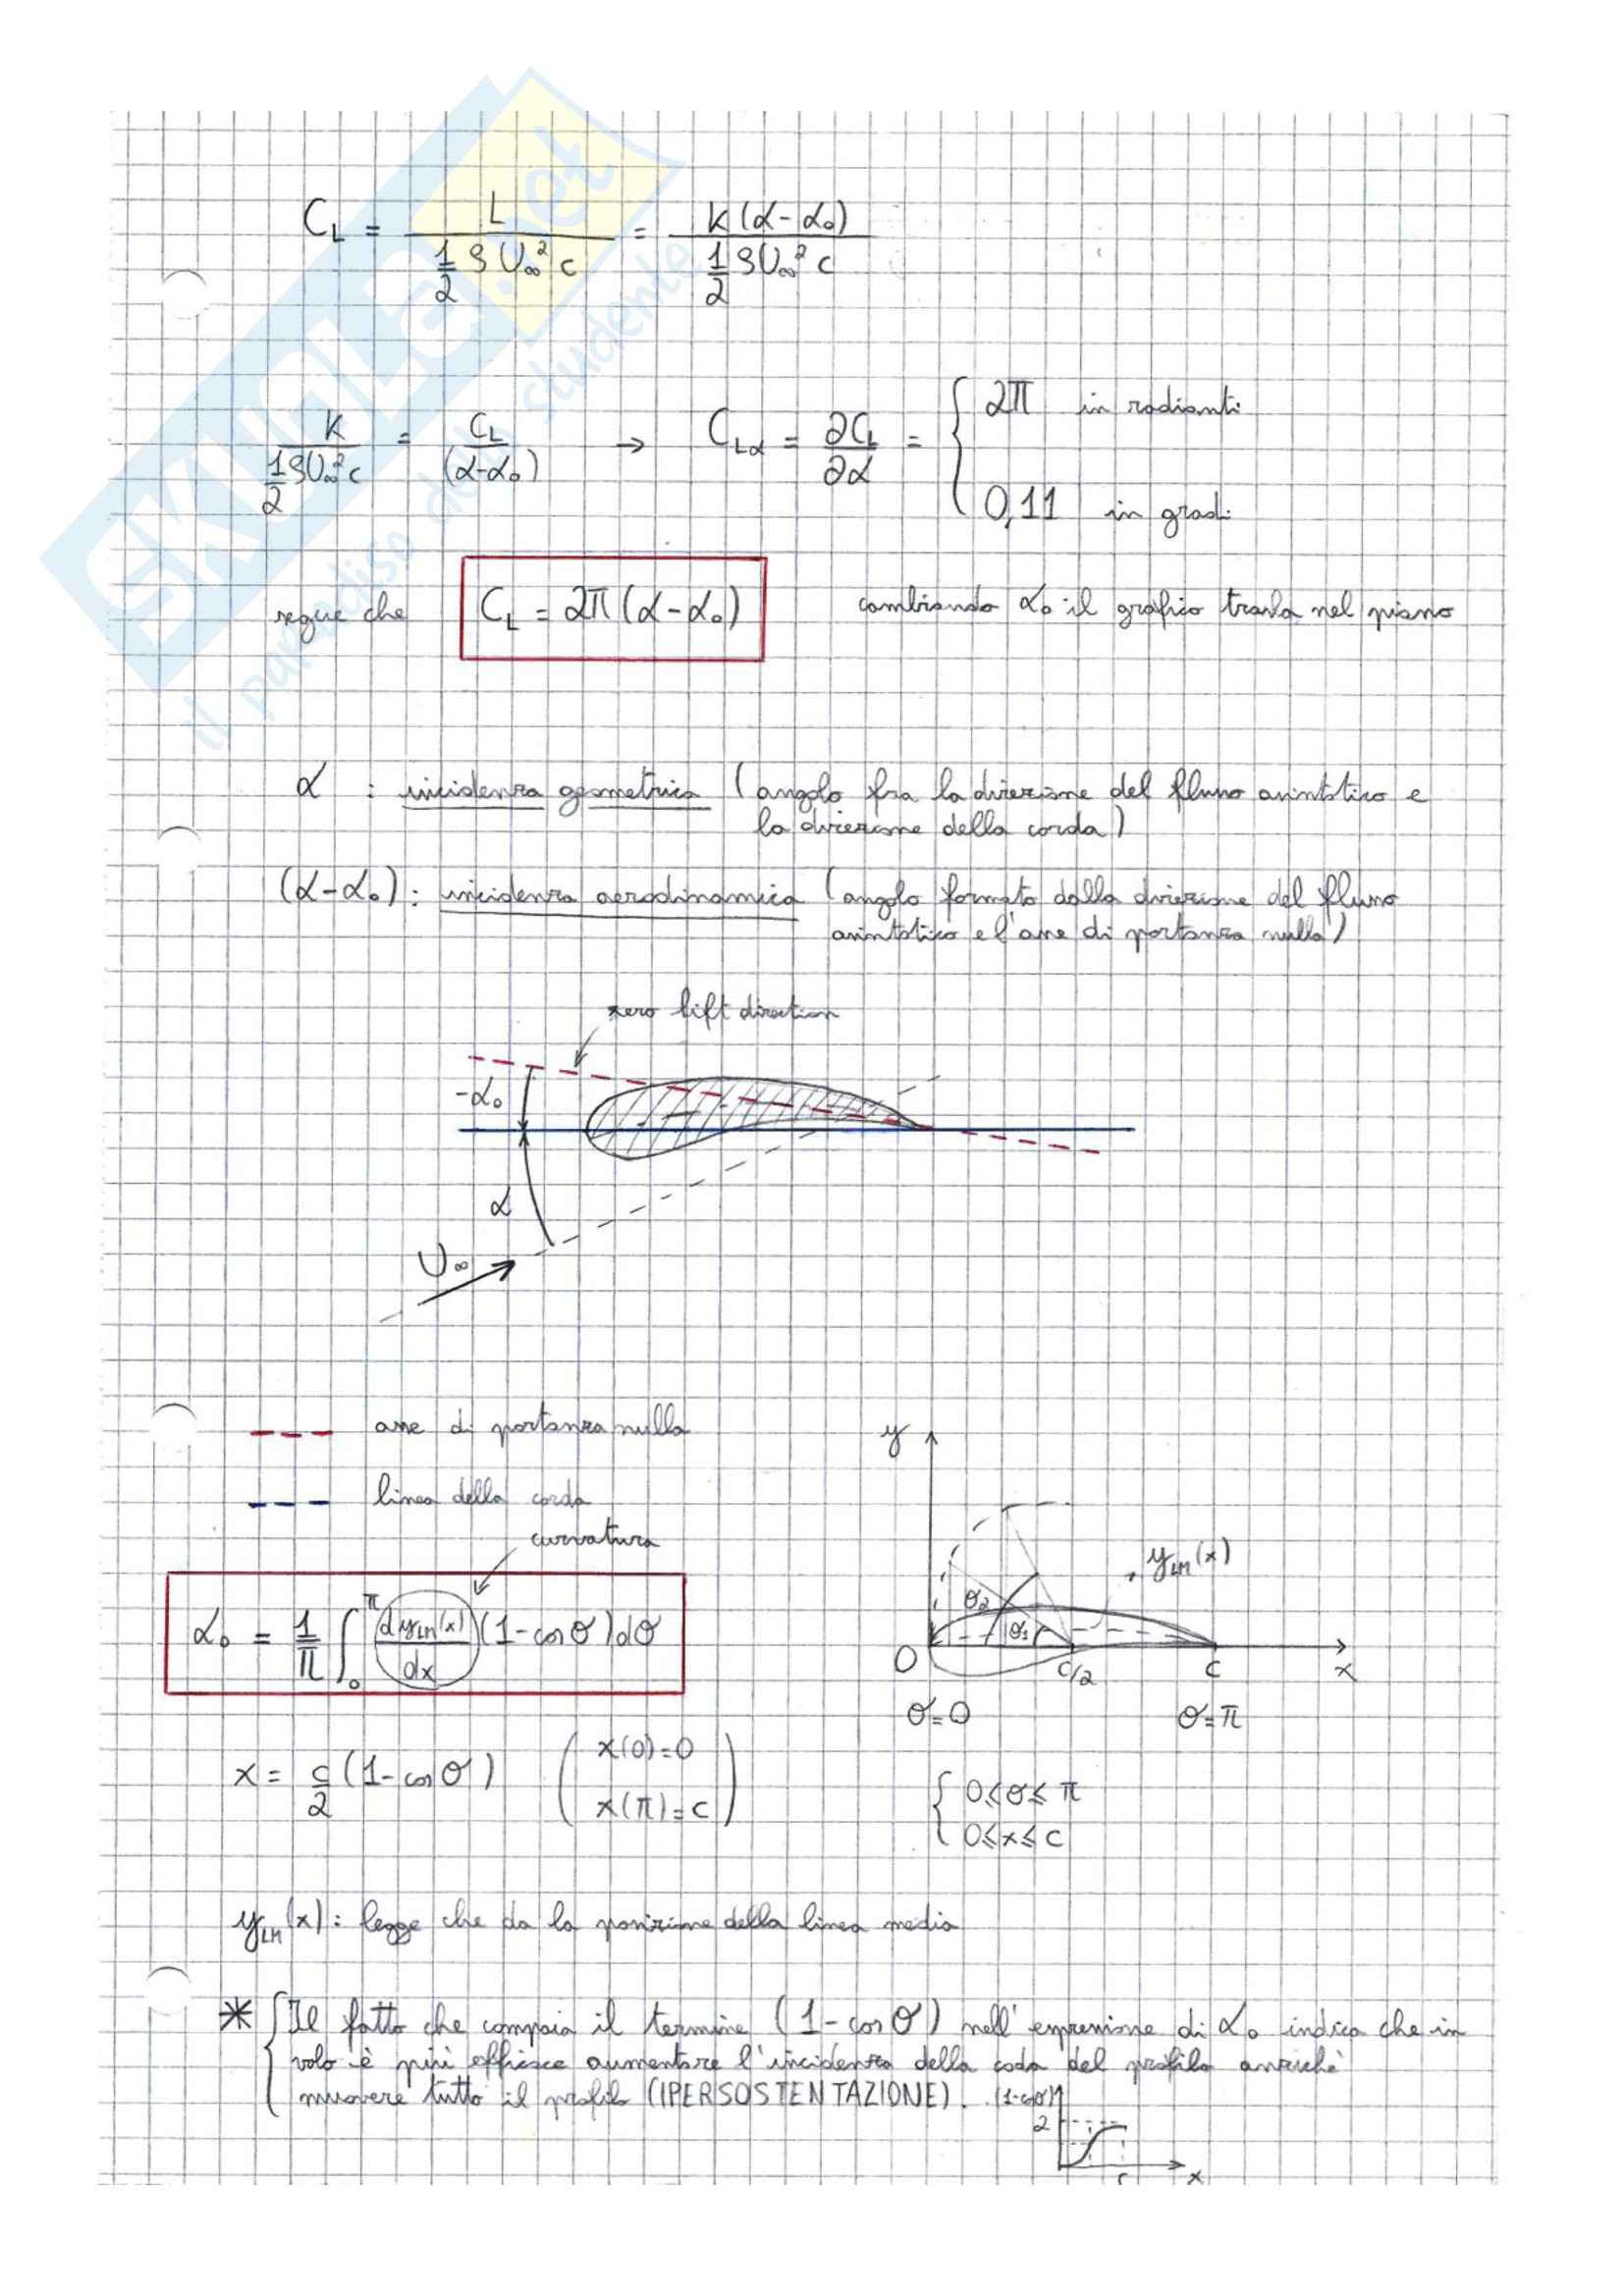 C_L = L / (1/2 ρ U∞² c) = K(α-α₀) / (1/2 ρ U∞² c)
K / (1/2 ρ U∞² c) = C_L / (α-α₀) → C_Lα = ∂C_L / ∂α = { 2π in radianti
0,11 in gradi
segue che C_L = 2π(α-α₀) cambiando α₀ il grafico trasla nel piano
α : incidenza geometrica (angolo fra la direzione del flusso asintotico e
la direzione della corda)
(α-α₀): incidenza aerodinamica (angolo formato dalla direzione del flusso
asintotico e l'asse di portanza nulla)
zero lift direction
-α₀
α
U∞
asse di portanza nulla
linea della corda
curvatura
α₀ = 1/π ∫₀^π (dy_LM(x)/dx) (1-cosθ)dθ
y
y_LM(x)
θ₂
θ₁
O c/2 c x
θ=0 θ=π
x = c/2 (1-cosθ) ( x(0)=0
x(π)=c )
{ 0≤θ≤π
0≤x≤c
y_LM(x): legge che da la posizione della linea media
* { Il fatto che compaia il termine (1-cosθ) nell'espressione di α₀ indica che in
volo è più efficace aumentare l'incidenza della coda del profilo anziché
muovere tutto il profilo (IPERSOSTENTAZIONE).
(1-cosθ)
2
c x
SKUOLA.net
il paradiso dello studente